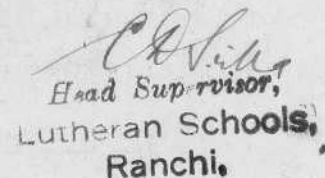 Head Supervisor,
Lutheran Schools,
Ranchi.